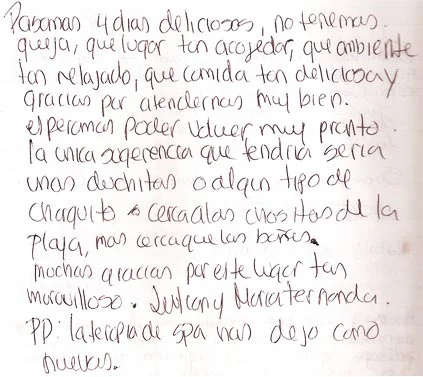 Pasamos 4 dias deliciosos, no tenemos.
queja, que lugar tan acojedor, que ambiente
tan relajado, que comida tan deliciosa y
gracias por atendernos muy bien.
esperamos poder volver muy pronto.
la unica sugerencia que tendria seria
unas duchitas o algun tipo de
charquito cerca a las chositas de la
playa, mas cerca que los baños.
muchas gracias por este lugar tan
maravilloso. y Maria fernanda.
PD: la terapia de spa nos dejo como
nuevas.